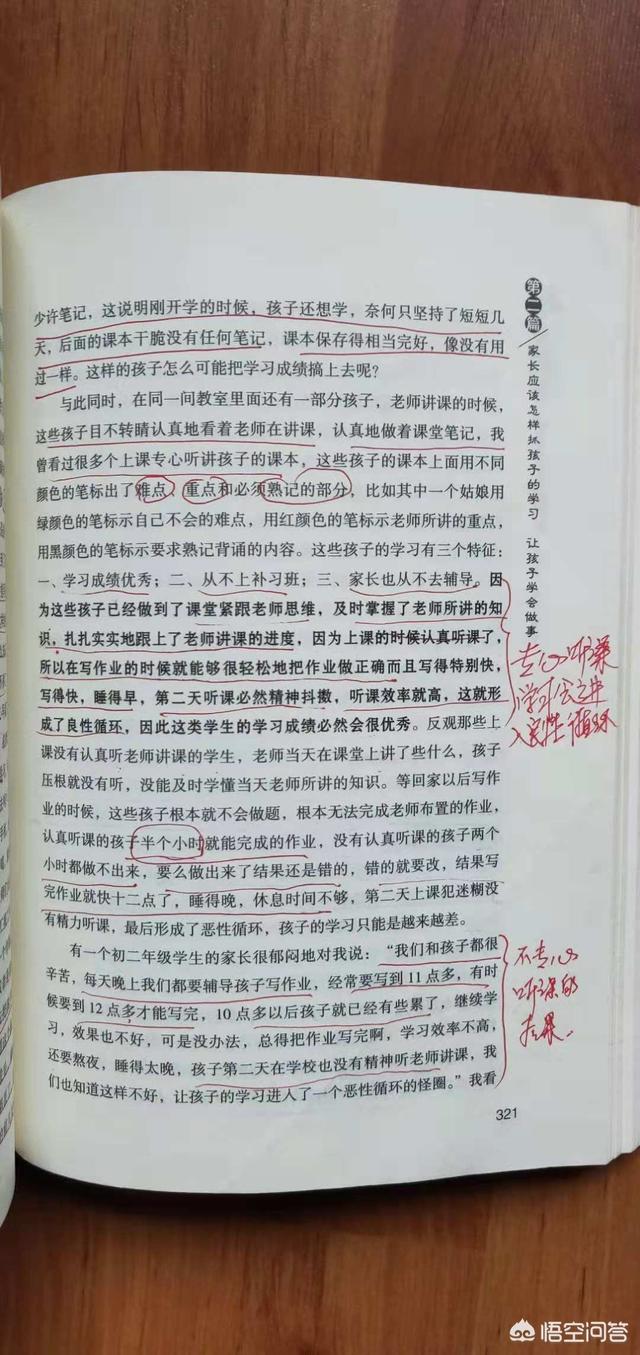 少许笔记，这说明刚开学的时候，孩子还想学，奈何只坚持了短短几
天，后面的课本干脆没有任何笔记，课本保存得相当完好，像没有用
过一样。这样的孩子怎么可能把学习成绩搞上去呢？
与此同时，在同一间教室里面还有一部分孩子，老师讲课的时候，
这些孩子目不转睛认真地看着老师在讲课，认真地做着课堂笔记，我
曾看过很多个上课专心听讲孩子的课本，这些孩子的课本上面用不同
颜色的笔标出了难点、重点和必须熟记的部分，比如其中一个姑娘用
绿颜色的笔标示自己不会的难点，用红颜色的笔标示老师所讲的重点，
用黑颜色的笔标示要求熟记背诵的内容。这些孩子的学习有三个特征：
一、学习成绩优秀；二、从不上补习班；三、家长也从不去辅导。因
为这些孩子已经做到了课堂紧跟老师思维，及时掌握了老师所讲的知
识，扎扎实实地跟上了老师讲课的进度，因为上课的时候认真听课了，
所以在写作业的时候就能够很轻松地把作业做正确而且写得特别快，
写得快，睡得早，第二天听课必然精神抖擞，听课效率就高，这就形
成了良性循环，因此这类学生的学习成绩必然会很优秀。反观那些上
课没有认真听老师讲课的学生，老师当天在课堂上讲了些什么，孩子
压根就没有听，没能及时学懂当天老师所讲的知识。等回家以后写作
业的时候，这些孩子根本就不会做题，根本无法完成老师布置的作业，
认真听课的孩子半个小时就能完成的作业，没有认真听课的孩子两个
小时都做不出来，要么做出来了结果还是错的，错的就要改，结果写
完作业就快十二点了，睡得晚，休息时间不够，第二天上课犯迷糊没
有精力听课，最后形成了恶性循环，孩子的学习只能是越来越差。
有一个初二年级学生的家长很郁闷地对我说：“我们和孩子都很
辛苦，每天晚上我们都要辅导孩子写作业，经常要写到11点多，有时
候要到12点多才能写完，10点多以后孩子就已经有些累了，继续学
习，效果也不好，可是没办法，总得把作业写完啊，学习效率不高，
还要熬夜，睡得太晚，孩子第二天在学校也没有精神听老师讲课，我
们也知道这样不好，让孩子的学习进入了一个恶性循环的怪圈。”我看
321
第二篇
家长应该怎样抓孩子的学习 让孩子学会做事
专心听课
学习会
入良性循环
不专心
听课的
后果.
悟空问答